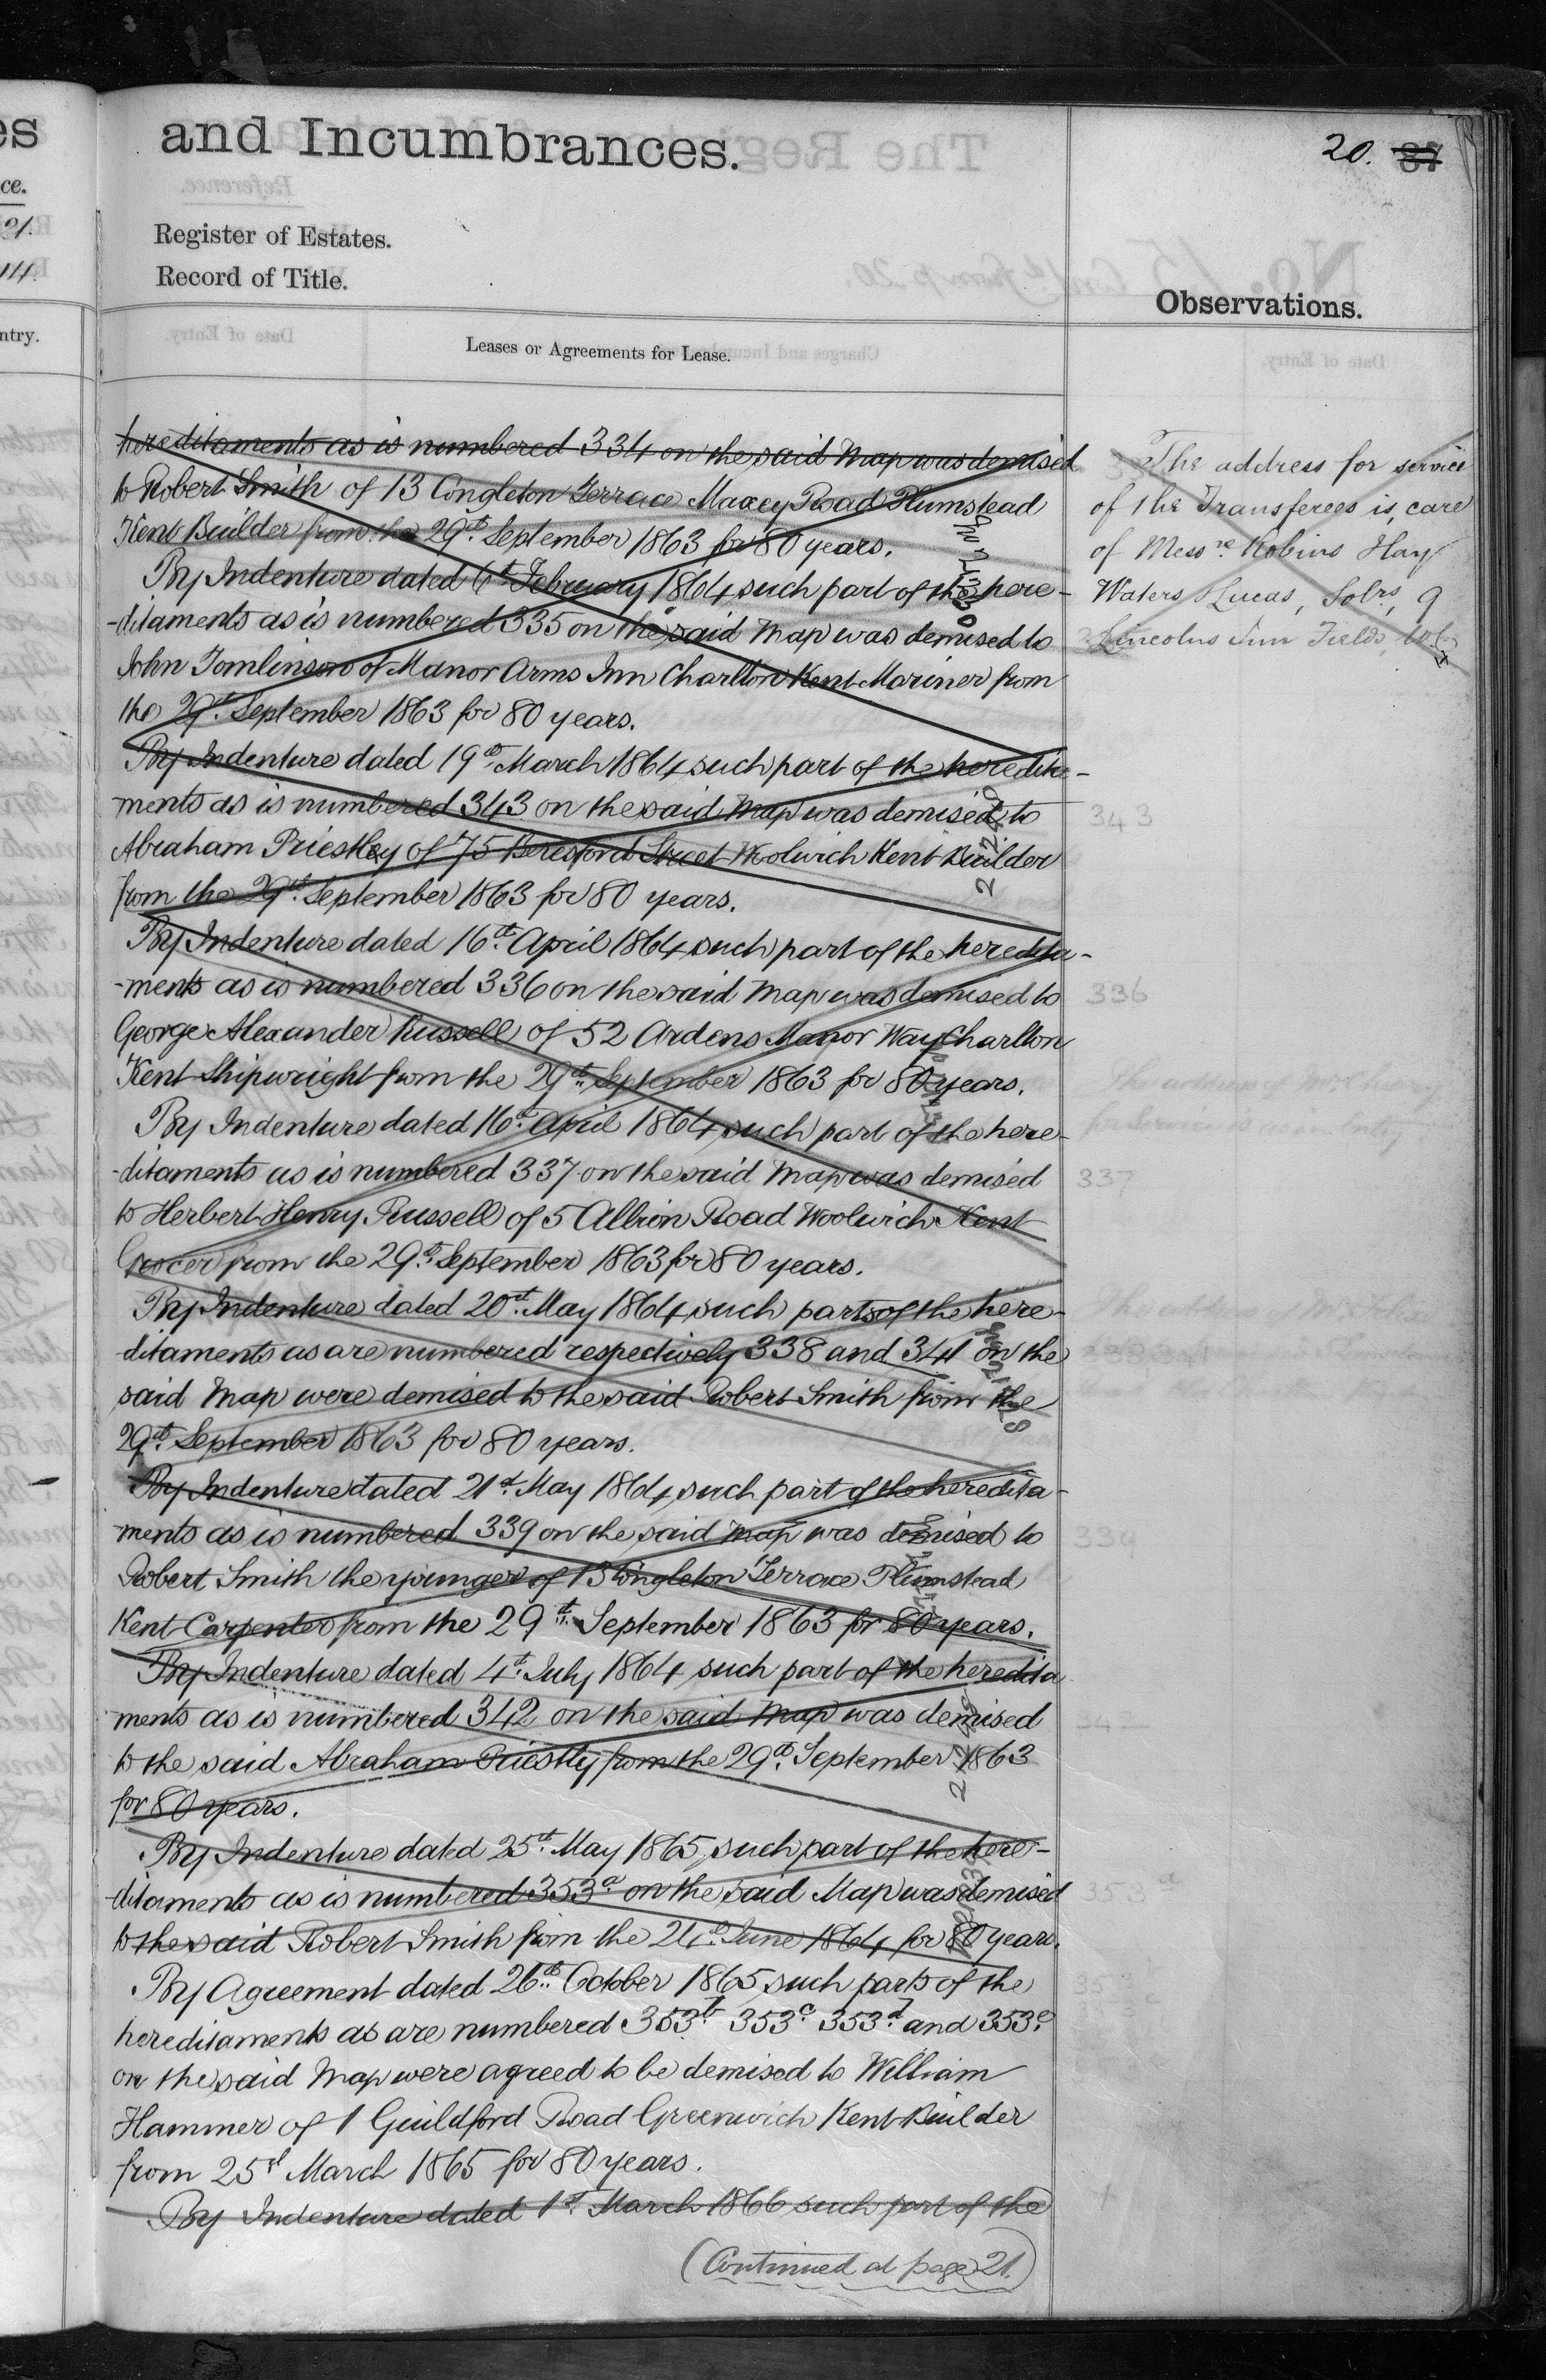 and Incumbrances.
20. 87
Register of Estates.
Record of Title.
Observations.
Leases or Agreements for Lease.
hereditaments as is numbered 334 on the said Map was demised
to Robert Smith of 13 Congleton Terrace Maxey Road Plumstead
Kent Builder from the 29th September 1863 for 80 years.
By Indenture dated 6th February 1864 such part of the here-
-ditaments as is numbered 335 on the said Map was demised to
John Tomlinson of Manor Arms Inn Charlton Kent Mariner from
the 29th September 1863 for 80 years.
By Indenture dated 19th March 1864 such part of the heredita-
ments as is numbered 343 on the said Map was demised to
Abraham Priestley of 75 Beresford Street Woolwich Kent Builder
from the 29th September 1863 for 80 years.
By Indenture dated 16th April 1864 such part of the heredita-
-ments as is numbered 336 on the said Map was demised to
George Alexander Russell of 52 Ardens Manor Way Charlton
Kent Shipwright from the 29th September 1863 for 80 years.
By Indenture dated 16th April 1864 such part of the here-
-ditaments as is numbered 337 on the said Map was demised
to Herbert Henry Russell of 5 Albion Road Woolwich Kent
Grocer from the 29th September 1863 for 80 years.
By Indenture dated 20th May 1864 such parts of the here-
ditaments as are numbered respectively 338 and 341 on the
said Map were demised to the said Robert Smith from the
29th September 1863 for 80 years.
By Indenture dated 21st May 1864 such part of the heredita-
ments as is numbered 339 on the said Map was demised to
Robert Smith the younger of 13 Congleton Terrace Plumstead
Kent Carpenter from the 29th September 1863 for 80 years.
By Indenture dated 4th July 1864 such part of the heredita
ments as is numbered 342 on the said Map was demised
to the said Abraham Priestly from the 29th September 1863
for 80 years.
By Indenture dated 25th May 1865 such part of the here-
ditaments as is numbered 353a on the said Map was demised
to the said Robert Smith from the 24th June 1864 for 80 years.
By Agreement dated 26th October 1865 such parts of the
hereditaments as are numbered 353b 353c 353d and 353e
on the said Map were agreed to be demised to William
Hammer of 1 Guildford Road Greenwich Kent Builder
from 25th March 1865 for 80 years.
By Indenture dated 1st March 1866 such part of the
(Continued at page 21.)
The address for service
of the Transferees is, care
of Messrs Robins Hay
Waters & Lucas, Solrs, 9
Lincolns Inn Fields, W.C.
343
336
337
338 341
339
353a
es
ce.
21.
114.
ntry.